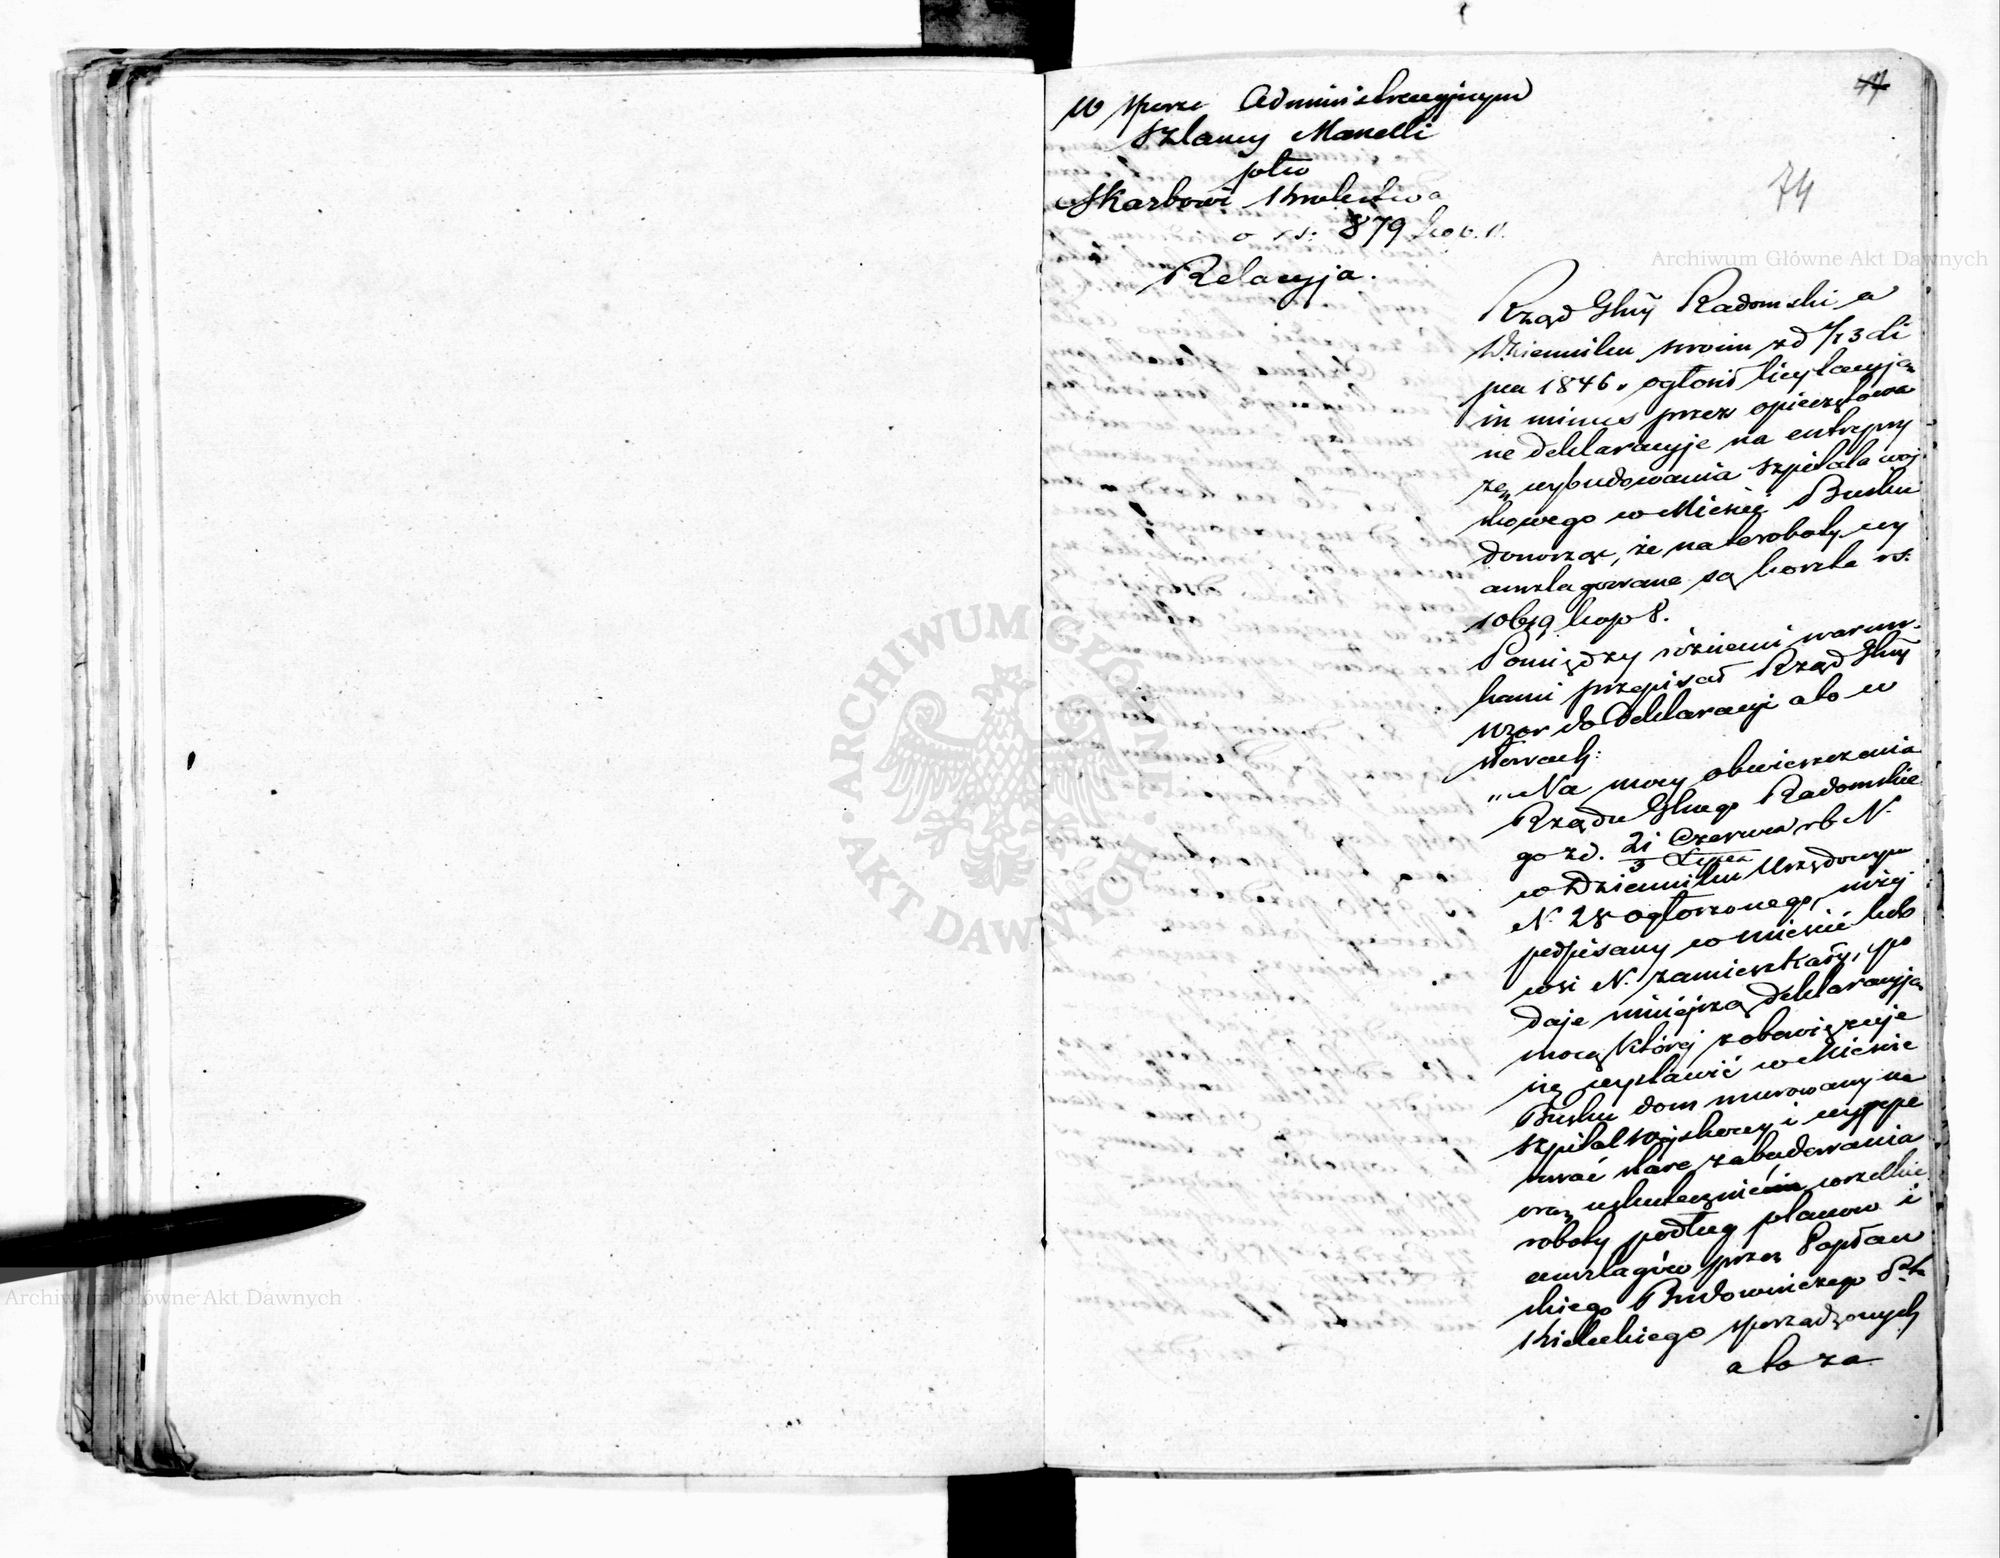 W sporze Administracyjnym
Szlamy Manelli
ptko
Skarbowi Królestwa
o rs. 879 kop. 11.
Relacyja.
74
Rząd Głny Radomski w
Dzienniku swoim z d 1/13 Li
pca 1846 r ogłosił licytacyją
in minus przez opieczętowa
ne deklaracyje na entrepry
zę wybudowania szpitala woj
skowego w Mieście Busku
donosząc, że na te roboty wy
anszlagowane są koszta rs.
10619 kop 8.
Pomiędzy różnemi warun-
kami przepisał Rząd Głny
wzor do deklaracyi a to w
słowach:
„Na mocy obwieszczenia
Rządu Głnego Radomskie
go z d. 21 Czerwca rb N.
3 Lipca
w Dzienniku Urzędowym
N. 28 ogłoszonego, niżej
podpisany w mieście lub
wsi N. zamieszkały, po
daje niniejszą deklaracyją
mocą której zobowiązuje
się wystawić w Mieście
Busku dom murowany na
szpital wojskowy i wyrepe
rować stare zabudowania
oraz uskutecznić wszelkie
roboty podług planow i
anszlagów przez Kapłan
skiego Budowniczego Ptu
Kieleckiego sporządzonych
a to za
Archiwum Główne Akt Dawnych
ARCHIWUM GŁÓWNE
AKT DAWNYCH
Archiwum Główne Akt Dawnych